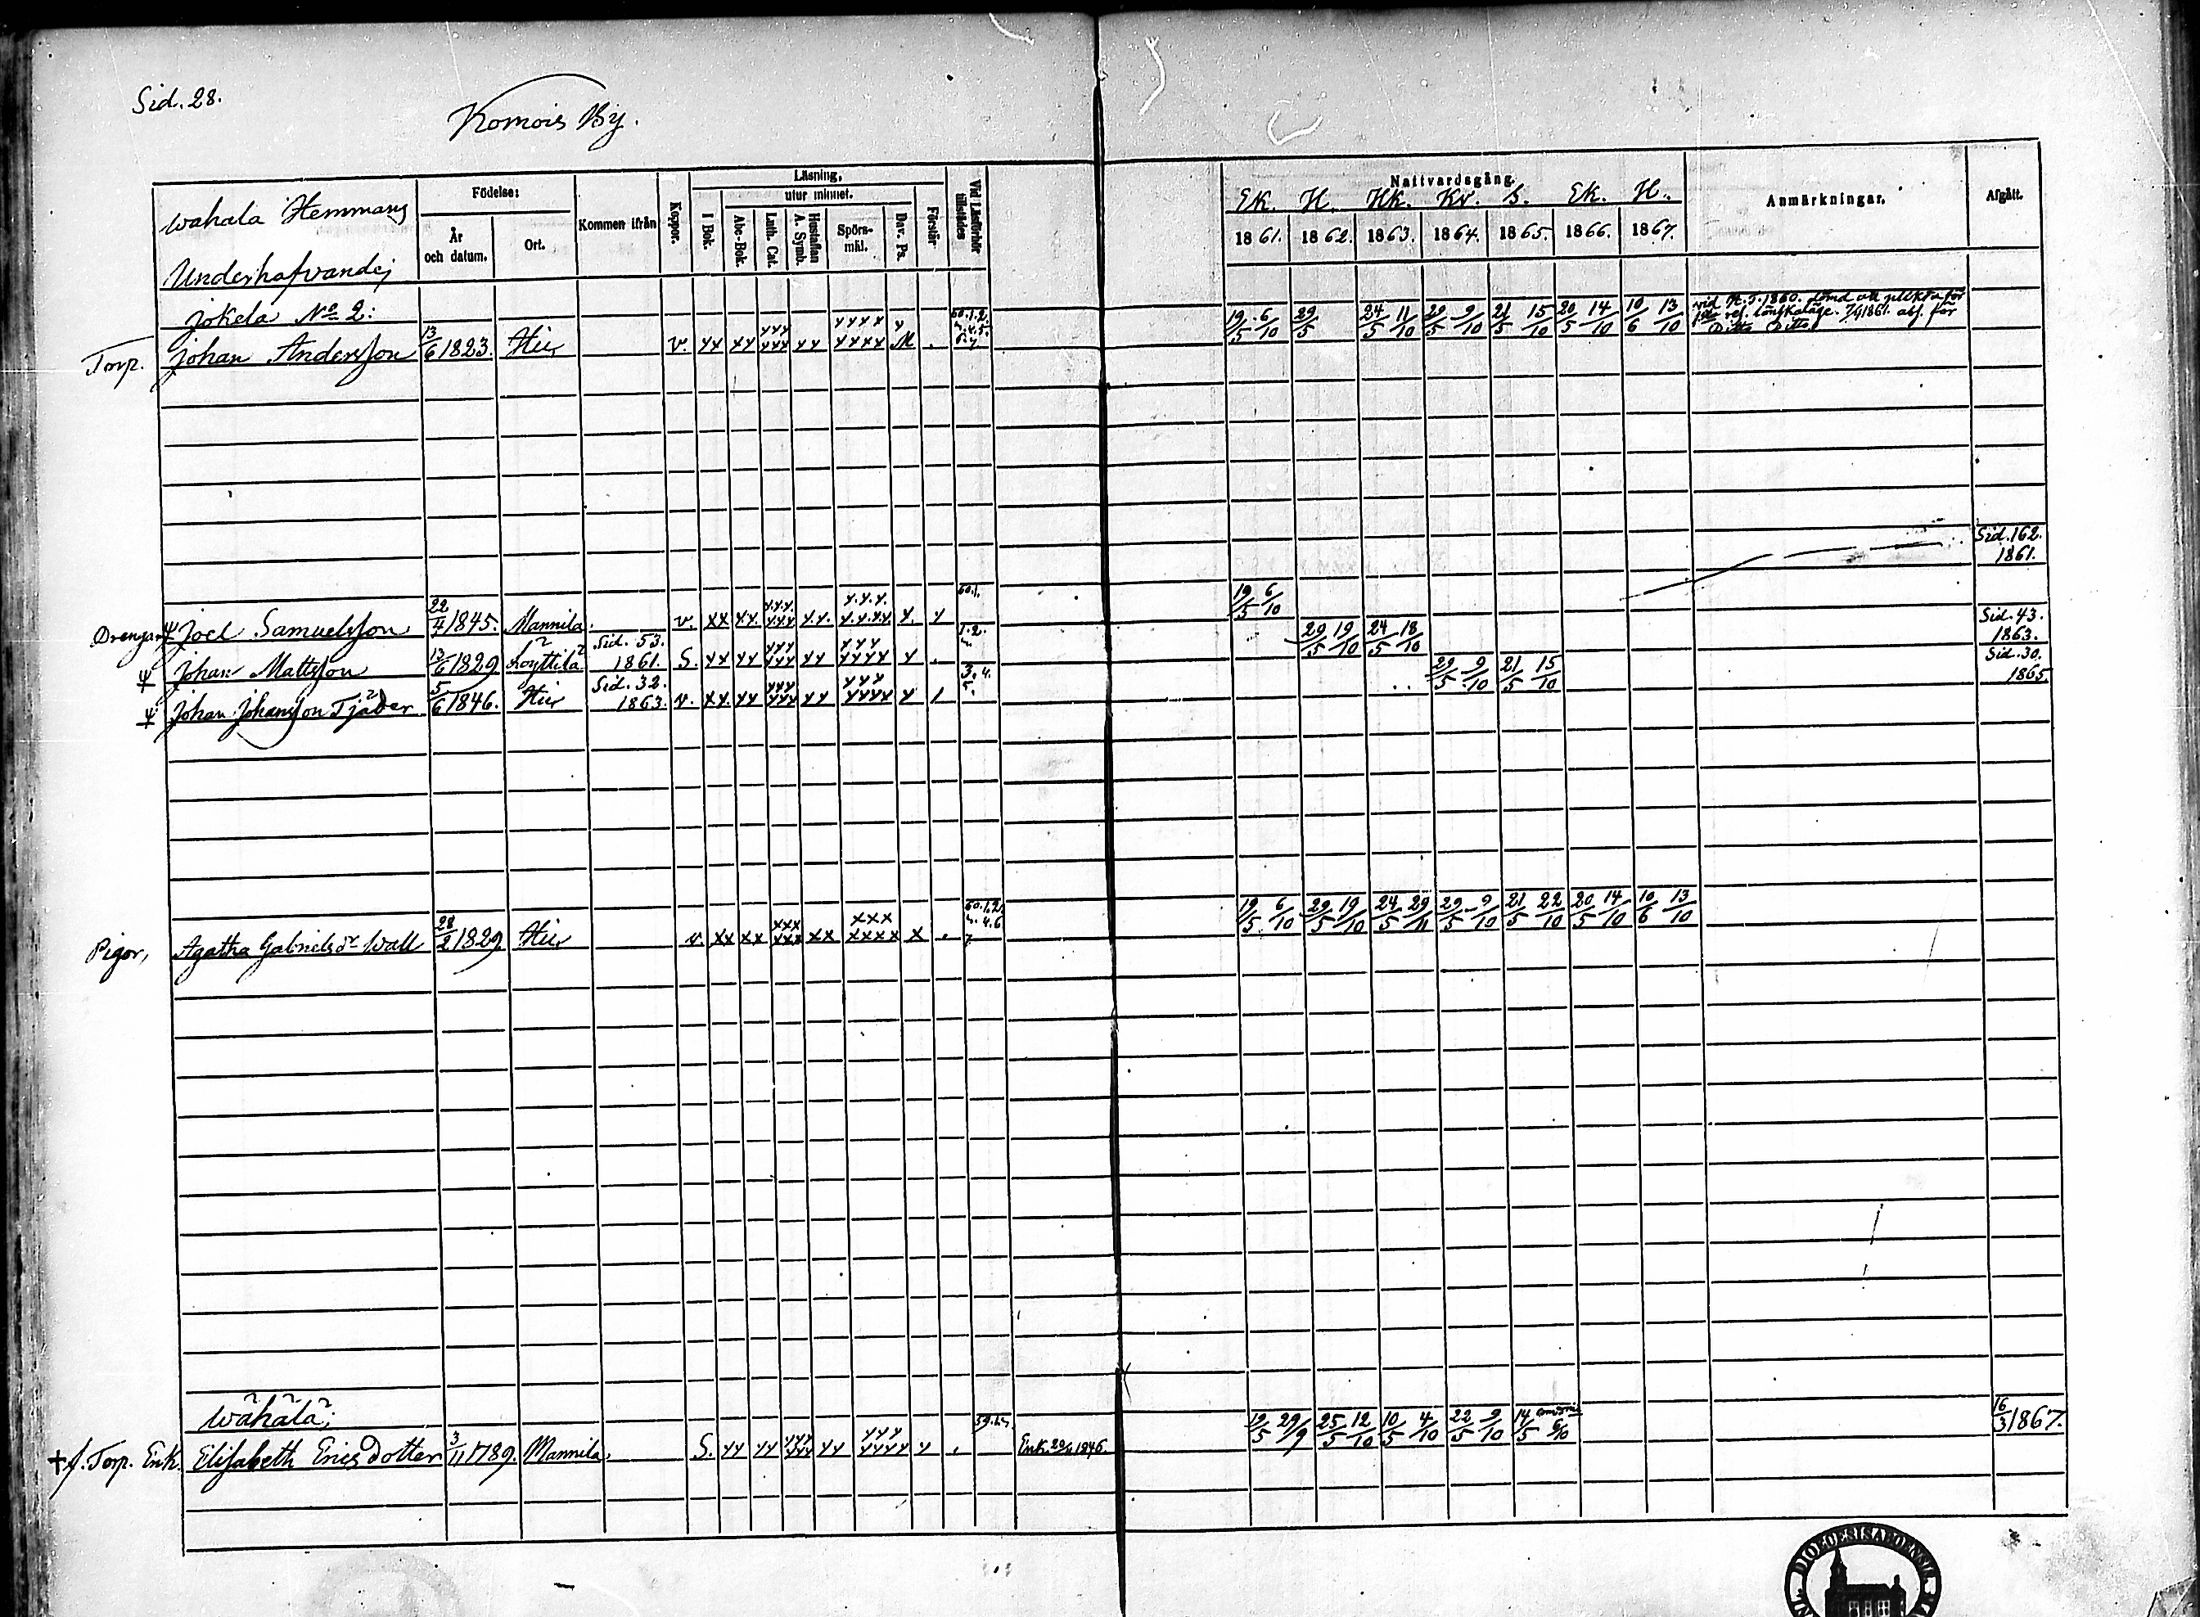 Sid. 28.
Komois By.
Wahala Hemmans
Underhafvande;
Födelse:
År och datum.
Ort.
Kommen ifrån
Koppor.
Läsning,
utur minnet.
I Bok.
Abc-Bok.
Luth. Cat.
Hustaflan A. Symb.
Spörs-mål.
Dav. Ps.
Förstår.
Vid Läsförhör tillstädes
Nattvardsgång.
Ek. H. Hk. Kr. S. Ek. H.
1861. 1862. 1863. 1864. 1865. 1866. 1867.
Anmärkningar.
Afgått.
Jokela No 2:
Torp. Johan Andersson 13/6 1823. Här v. xx xx xxx xxx xx xxxx xxxx x M . 60.1.2. 19/5 6/10 29/5 24/5 11/10 29/5 9/10 21/5 15/10 20/5 14/10 10/6 13/10
Ditto Ditto
Sid. 162. 1861.
Drengar Joel Samuelsson 22/4 1845. Mannila. v. xx xx xxx xxx xx xxx xxxx x x 60.1. 19/5 6/10
Johan Mattsson 13/6 1829 Löyttilä Sid. 53. 1861. S. xx xx xxx xxx xx xxx xxxx x . 1.2. 29/5 19/10 24/5 18/10 Sid. 43. 1863.
Johan Johansson Tjäder 5/6 1846. Här Sid. 32. 1863. v. xx xx xxx xxx xx xxx xxxx x / 3.4. 5. 29/5 9/10 21/5 15/10 Sid. 30. 1865.
Pigor, Agatha Gabrielsdr Wall 28/2 1829 Här v. xx xx xxx xxx xx xxx xxxx x . 60.1.2. 4.6 7. 19/5 6/10 29/5 19/10 24/5 29/11 29/5 9/10 21/5 22/10 20/5 14/10 10/6 13/10
Wähälä;
† f. Torp. Enk. Elisabeth Ericsdotter 3/11 1789. Mannila. S. xx xx xxx xxx xx xxx xxxx x . Enk. 1846. 19/5 29/9 25/5 12/10 10/5 4/10 22/5 9/10 14/5 16/3 1867.
DIOECESIS ABOENSIS